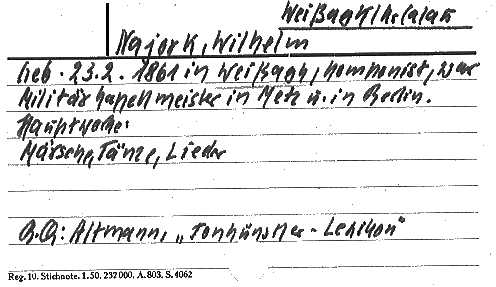 Weißagk/Kr.Calau
Najork, Wilhelm
Geb. 23.2. 1861 in Weißagk, Komponist, war
Militärkapellmeister in Metz u. in Berlin.
Hauptwerke:
Märsche, Tänze, Lieder
Altmann, „Tonkünstler-Lexikon"
Reg. 10. Stichnote. 1.50. 232000, A. 803. S. 4062